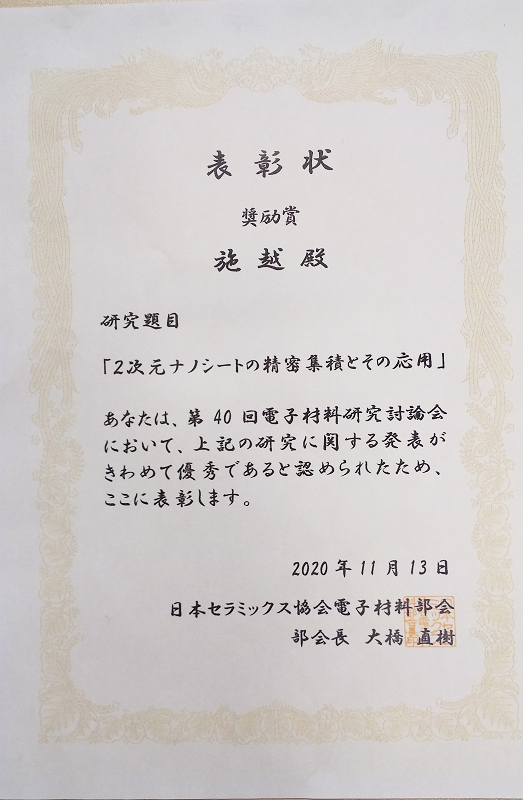 表彰状
奨励賞
施越殿
研究題目
「2次元ナノシートの精密集積とその応用」
あなたは、第40回電子材料研究討論会
において、上記の研究に関する発表が
きわめて優秀であると認められたため、
ここに表彰します。
2020年11月13日
日本セラミックス協会電子材料部会
部会長 大橋 直樹